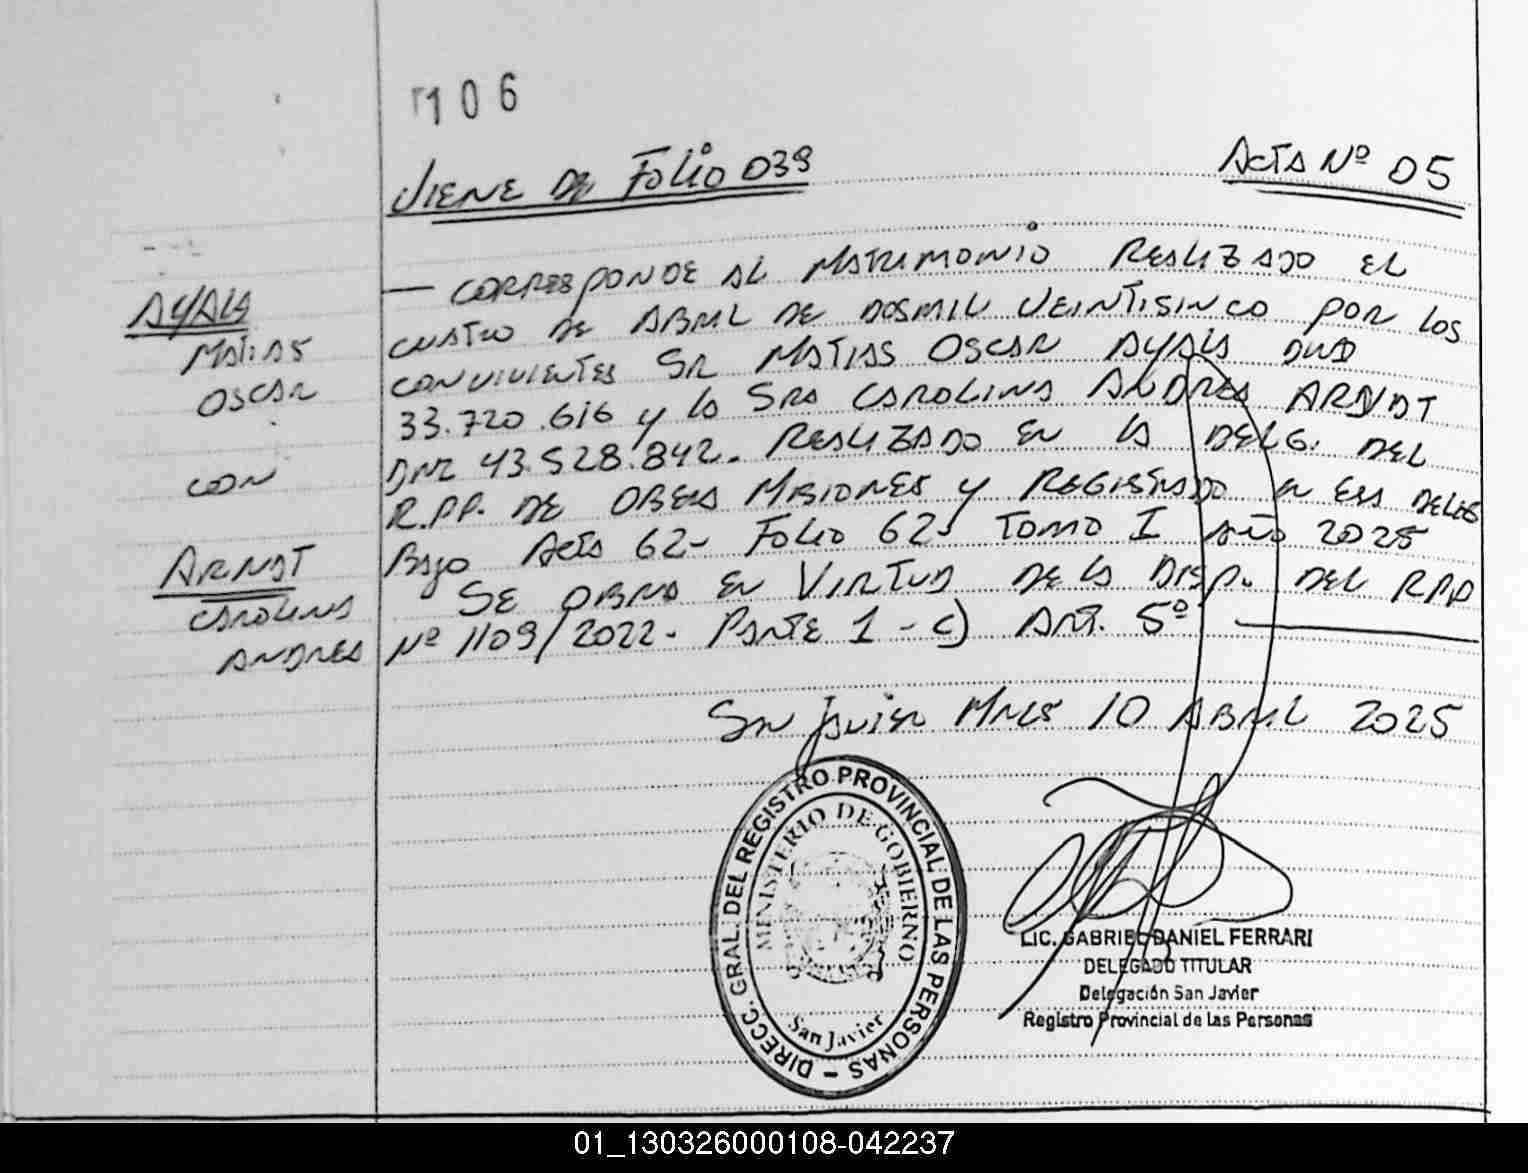 106
VIENE DE FOLIO 039
ACTA Nº 05
AYALA
MATIAS
OSCAR
CON
ARNDT
CAROLINA
ANDREA
— CORRESPONDE AL MATRIMONIO REALIZADO EL
CUATRO DE ABRIL DE DOSMIL VEINTISINCO POR LOS
CONVIVIENTES SR MATIAS OSCAR AYALA DNI
33.720.616 y la SRA CAROLINA ANDREA ARNDT
DNI 43.528.842. REALIZADO EN LA DELG. DEL
R.P.P. DE OBERA MISIONES y REGISTRADO EN ESA DELEG
BAJO Acta 62- FOLIO 62- TOMO I AÑO 2025
SE OBRA EN VIRTUD DE LA DISP. DEL RPP
Nº 1109/2022- PARTE 1 - C) ART. 5º
San Javier Mnes 10 ABRIL 2025
DIRECC. GRAL. DEL REGISTRO PROVINCIAL DE LAS PERSONAS –
MINISTERIO DE GOBIERNO
San Javier
LIC. GABRIEL DANIEL FERRARI
DELEGADO TITULAR
Delegación San Javier
Registro Provincial de las Personas
01_130326000108-042237